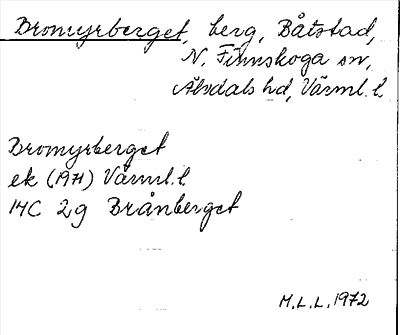 Bromyrberget, berg, Båtstad,
N. Finnskoga sn,
Älvdals hd, Värml. l.
Bromyrberget
ek (1971) Värml. l
14C 2g Brånberget
M.L.L. 1972